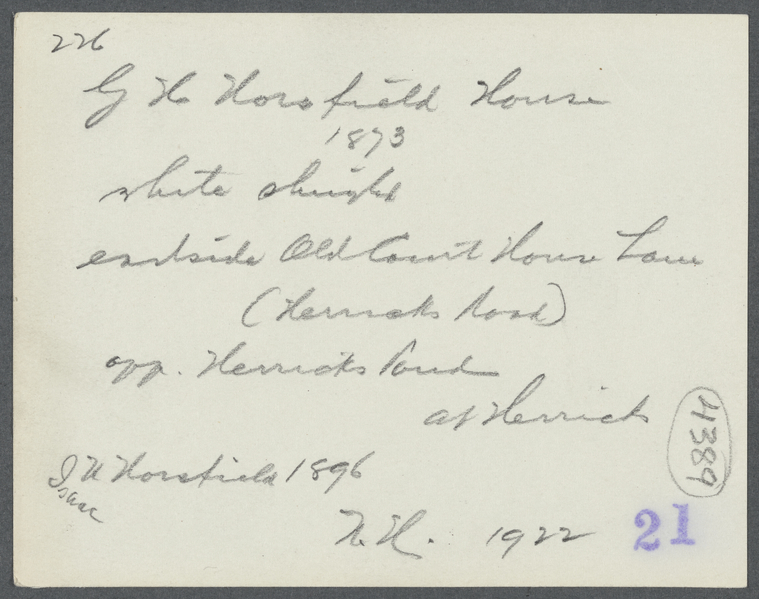 226
G H Horsfield House
1873
white shingle
eastside Old Court House Lane
(Herricks Road)
opp. Herricks Pond
at Herricks
I U Horsfield 1896
Isaac
N.H. 1922
21
4389